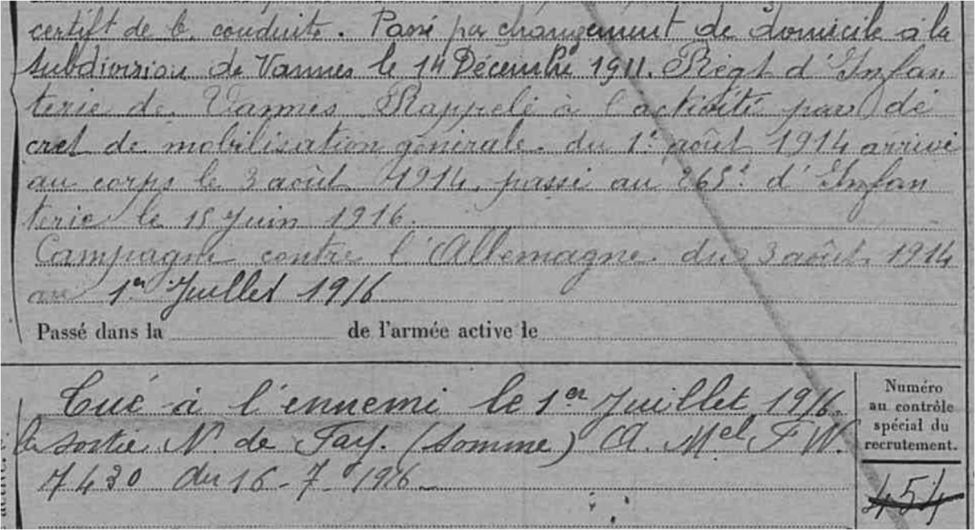 certift de b. conduite. Passé par changement de domicile à la
subdivision de Vannes le 14 Décembre 1911. Régt d'Infan
terie de Vannes Rappelé à l'activité par dé
cret de mobilisation générale du 1er août 1914 arrivé
au corps le 3 août 1914, passé au 265e d'Infan
terie le 15 Juin 1916.
Campagne contre l'Allemagne du 3 août 1914
au 1er Juillet 1916
Passé dans la de l'armée active le
Tué à l'ennemi le 1er Juillet 1916.
la sortie N. de Fay. (Somme) A. Mel F W.
7430 du 16-7-1916
Numéro
au contrôle
spécial du
recrutement.
454